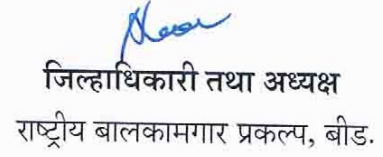 जिल्हाधिकारी तथा अध्यक्ष
राष्ट्रीय बालकामगार प्रकल्प, बीड.